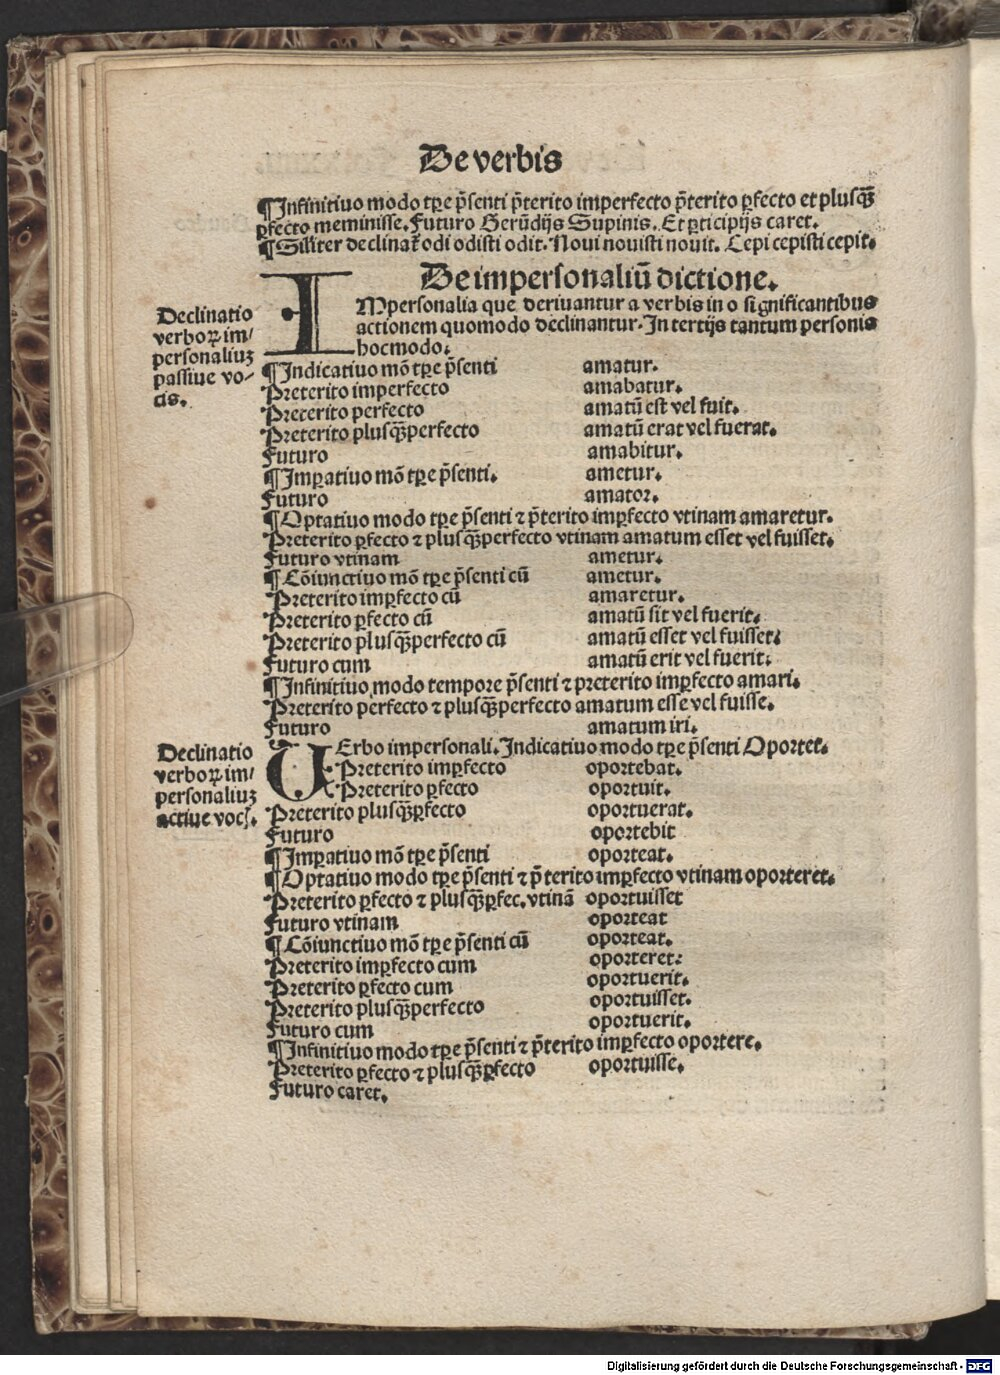 De verbis
¶Infinitiuo modo tꝑe p̄senti p̄terito imperfecto p̄terito ꝑfecto et plusq̄ꝫ
ꝑfecto meminisse. Futuro Gerūdijs Supinis. Et ꝑticipijs caret.
¶Silīter declinat᷑ odi odisti odit. Noui nouisti nouit. Cepi cepisti cepit.
De impersonaliū dictione.
Declinatio
verboꝝ im/
personaliuꝫ
passiue vo-
cis.
IMpersonalia que deriuantur a verbis in o significantibus
actionem quomodo declinantur. In tertijs tantum personis
hocmodo.
¶Indicatiuo mō tꝑe p̄senti amatur.
Preterito imperfecto amabatur.
Preterito perfecto amatū est vel fuit.
Preterito plusq̄ꝫperfecto amatū erat vel fuerat.
Futuro amabitur.
¶Imꝑatiuo mō tꝑe p̄senti. ametur.
Futuro amator.
¶Optatiuo modo tꝑe p̄senti ⁊ p̄terito imꝑfecto vtinam amaretur.
Preterito ꝑfecto ⁊ plusq̄ꝫperfecto vtinam amatum esset vel fuisset.
Futuro vtinam ametur.
¶Cōiunctiuo mō tꝑe p̄senti cū ametur.
Preterito imꝑfecto cū amaretur.
Preterito ꝑfecto cū amatū sit vel fuerit.
Preterito plusq̄ꝫperfecto cū amatū esset vel fuisset.
Futuro cum amatū erit vel fuerit.
¶Infinitiuo modo tempore p̄senti ⁊ preterito imꝑfecto amari.
Preterito perfecto ⁊ plusq̄ꝫperfecto amatum esse vel fuisse.
Futuro amatum iri.
Declinatio
verboꝝ im/
personaliuꝫ
actiue vocꝭ.
VErbo impersonali. Indicatiuo modo tꝑe p̄senti Oportet.
Preterito imꝑfecto oportebat.
Preterito ꝑfecto oportuit.
Preterito plusq̄ꝫꝑfecto oportuerat.
Futuro oportebit
¶Imꝑatiuo mō tꝑe p̄senti oporteat.
¶Optatiuo modo tꝑe p̄senti ⁊ p̄terito imꝑfecto vtinam oporteret.
Preterito ꝑfecto ⁊ plusq̄ꝫꝑfec. vtinā oportuisset
Futuro vtinam oporteat
¶Cōiunctiuo mō tꝑe p̄senti cū oporteat.
Preterito imꝑfecto cum oporteret.
Preterito ꝑfecto cum oportuerit.
Preterito plusq̄ꝫperfecto oportuisset.
Futuro cum oportuerit.
¶Infinitiuo modo tꝑe p̄senti ⁊ p̄terito imꝑfecto oportere.
Preterito ꝑfecto ⁊ plusq̄ꝫꝑfecto oportuisse.
Futuro caret.
Digitalisierung gefördert durch die Deutsche Forschungsgemeinschaft - DFG